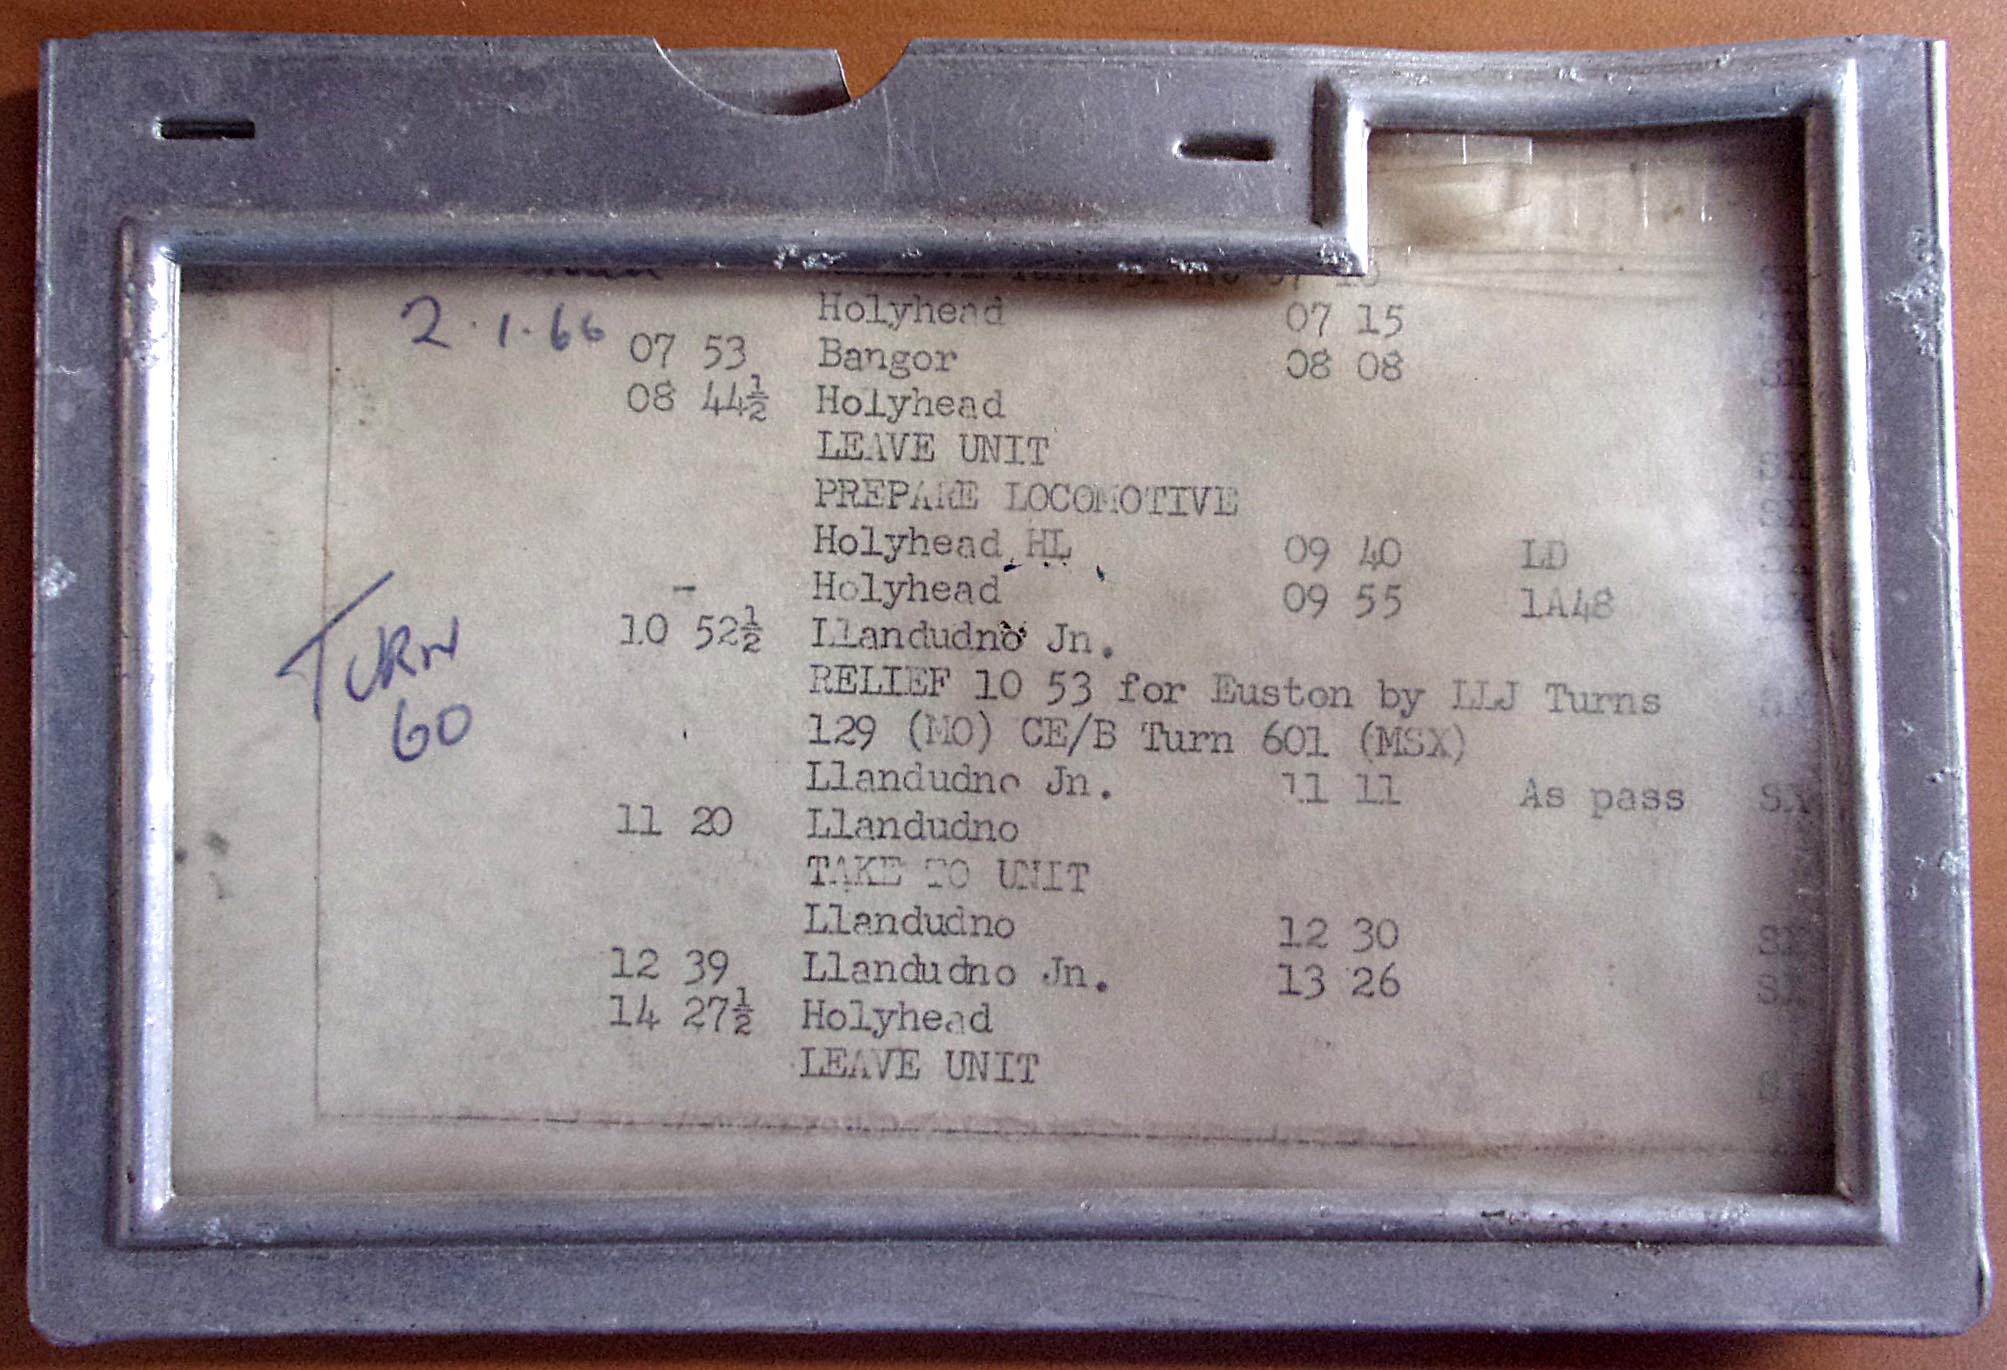 2.1.66
Holyhead 07 15
07 53 Bangor 08 08
08 44½ Holyhead
LEAVE UNIT
PREPARE LOCOMOTIVE
Holyhead HL 09 40 LD
- Holyhead 09 55 1A48
10 52½ Llandudno Jn.
TURN
60
RELIEF 10 53 for Euston by LLJ Turns
129 (MO) CE/B Turn 601 (MSX)
Llandudno Jn. 11 11 As pass SX
11 20 Llandudno
TAKE TO UNIT
Llandudno 12 30
12 39 Llandudno Jn. 13 26
14 27½ Holyhead
LEAVE UNIT